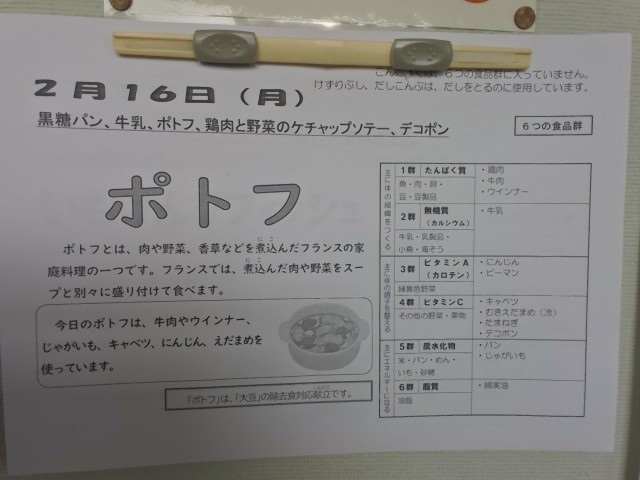 ６つの食品群に入っていません。
けずりぶし、だしこんぶは、だしをとるのに使用しています。
２月１６日（月）
黒糖パン、牛乳、ポトフ、鶏肉と野菜のケチャップソテー、デコポン
６つの食品群
ポトフ
ポトフとは、肉や野菜、香草などを煮込んだフランスの家
庭料理の一つです。フランスでは、煮込んだ肉や野菜をスー
プと別々に盛り付けて食べます。
今日のポトフは、牛肉やウインナー、
じゃがいも、キャベツ、にんじん、えだまめを
使っています。
「ポトフ」は、「大豆」の除去食対応献立です。
主に体の組織をつくる
１群 たんぱく質
魚・肉・卵・
豆・豆製品
・鶏肉
・牛肉
・ウインナー
２群 無機質
（カルシウム）
牛乳・乳製品・
小魚・海そう
・牛乳
主に体の調子を整える
３群 ビタミンＡ
（カロテン）
緑黄色野菜
・にんじん
・ピーマン
４群 ビタミンＣ
その他の野菜・果物
・キャベツ
・むきえだまめ（冷）
・たまねぎ
・デコポン
主にエネルギーになる
５群 炭水化物
米・パン・めん・
いも・砂糖
・パン
・じゃがいも
６群 脂質
油脂
・綿実油